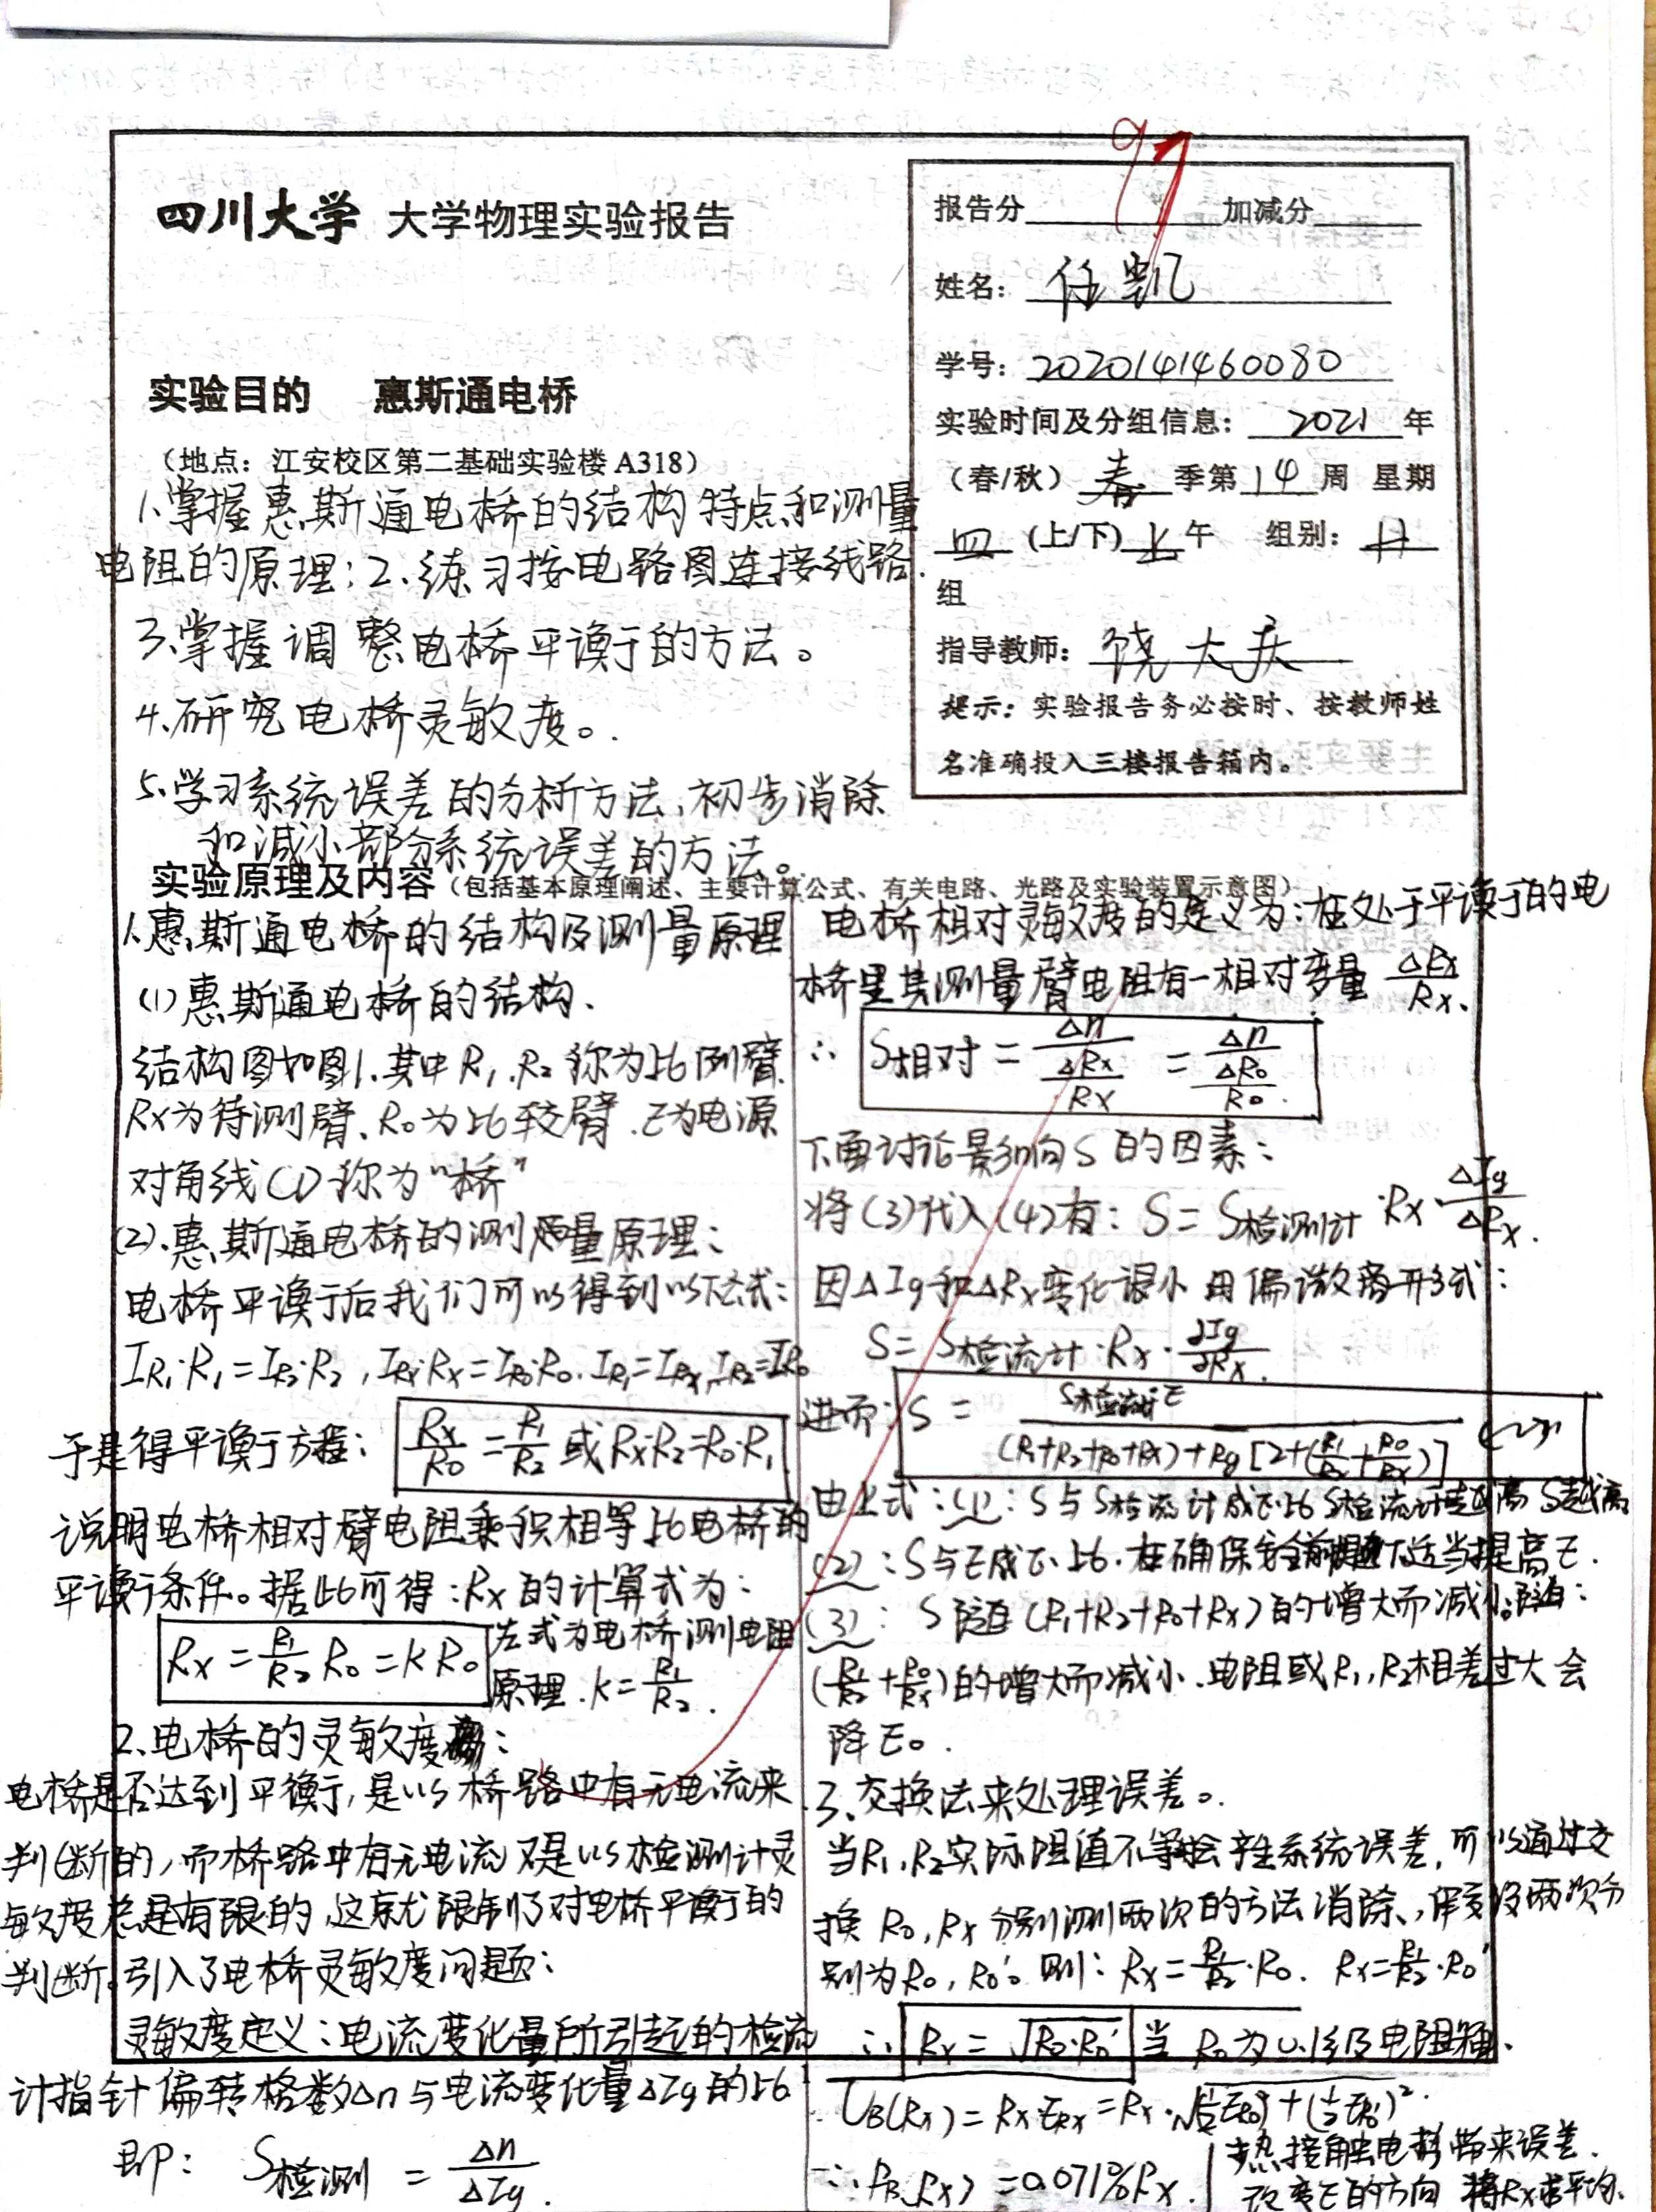 97
四川大学 大学物理实验报告
报告分 加减分
姓名: 任凯
学号: 2020141460080
实验时间及分组信息: 2021 年
(春/秋) 春 季第 14 周 星期
四 (上/下) 上 午 组别: 廿
组
指导教师: 饶大庆
提示: 实验报告务必按时、按教师姓
名准确投入三楼报告箱内。
实验目的 惠斯通电桥
(地点: 江安校区第二基础实验楼 A318)
1.掌握惠斯通电桥的结构特点和测量
电阻的原理; 2.练习按电路图连接线路.
3.掌握调整电桥平衡的方法。
4.研究电桥灵敏度。
5.学习系统误差的分析方法,初步消除
和减小部分系统误差的方法。
实验原理及内容 (包括基本原理阐述、主要计算公式、有关电路、光路及实验装置示意图)
1.惠斯通电桥的结构及测量原理
(1)惠斯通电桥的结构.
结构图如图1.其中R₁.R₂称为比例臂.
Rx为待测臂、R₀为比较臂.E为电源
对角线CD称为"桥"
(2).惠斯通电桥的测量原理:
电桥平衡后我们可以得到以下式:
I_R₁·R₁=I_R₂·R₂,I_Rx·Rx=I_R₀·R₀.I_R₁=I_Rx,I_R₂=I_R₀
于是得平衡方程: Rx/R₀=R₁/R₂ 或 Rx·R₂=R₀·R₁
说明电桥相对臂电阻乘积相等比电桥的
平衡条件。据此可得:Rx的计算式为:
Rx=R₁/R₂ R₀=KR₀ 左式为电桥测电阻
原理.K=R₁/R₂.
2.电桥的灵敏度:
电桥是否达到平衡,是以桥路中有无电流来
判断的,而桥路中有无电流又是以检测计灵
敏度总是有限的,这就限制了对电桥平衡的
判断。引入了电桥灵敏度问题:
灵敏度定义:电流变化量所引起的检流
计指针偏转格数Δn与电流变化量ΔIg的比
即: S检测=Δn/ΔIg.
电桥相对灵敏度的定义为:在处于平衡的电
桥里其测量臂电阻有一相对变量 ΔRx/Rx.
∴ S相对=Δn/(ΔRx/Rx)=Δn/(ΔR₀/R₀)
下面讨论影响S的因素:
将(3)代入(4)有: S=S检测计·Rx·ΔIg/ΔRx.
因ΔIg和ΔRx变化很小 用偏微商形式:
S=S检流计·Rx·∂Ig/∂Rx.
进而:S=S检流计E/((R₁+R₂+R₀+Rx)+Rg[2+(R₁/R₂+R₀/Rx)])
由上式:(1):S与S检流计成正比 S检流计越高 S越高
(2):S与E成正比.在确保安全前提下适当提高E.
(3): S随(R₁+R₂+R₀+Rx)的增大而减小.随:
(R₁/R₂+R₀/Rx)的增大而减小.电阻或R₁,R₂相差过大会
降E。.
3、交换法来处理误差。
当R₁,R₂实际阻值不等会产生系统误差,可以通过交
换R₀,Rx分别测两次的方法消除,设两次分
别为R₀,R₀'。则: Rx=R₁/R₂·R₀. Rx=R₂/R₁·R₀'
∴ Rx=√R₀·R₀' 当R₀为0.1级电阻箱.
∴ U_B(Rx)=Rx·E_Rx=Rx·√(½E_R₀)²+(½E_R₀')².
∴ U_B(Rx)=0.071%Rx.
热接触电势带来误差.
改变E的方向 将Rx求平均.